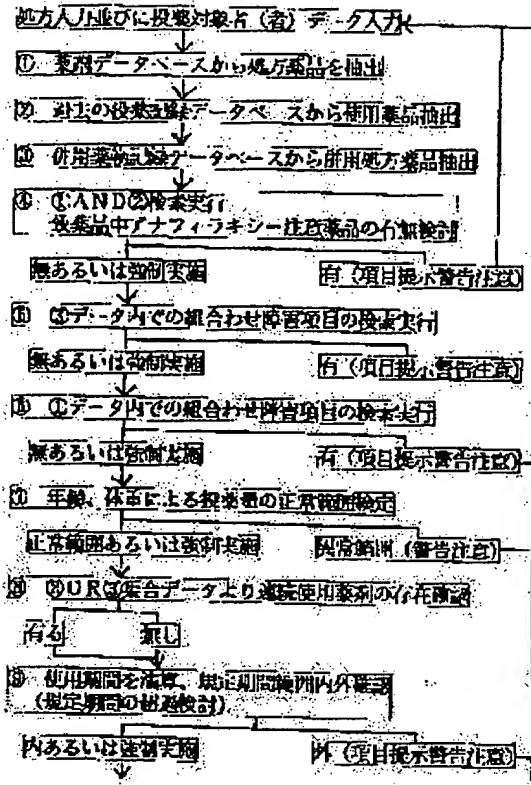 処方入力並びに投薬対象者(者)データ入力
① 薬剤データベースから処方薬品を抽出
② 過去の投薬記録データベースから使用薬品抽出
③ 併用薬物記録データベースから併用処方薬品抽出
④ ①AND②検索実行
投薬品中アナフィラキシー注意薬品の有無検討
無あるいは強制実施
有(項目提示警告注意)
⑤ ③データ内での組合わせ障害項目の検索実行
無あるいは強制実施
有(項目提示警告注意)
⑥ ①データ内での組合わせ障害項目の検索実行
無あるいは強制実施
有(項目提示警告注意)
⑦ 年齢、体重による投薬量の正常範囲検定
正常範囲あるいは強制実施
異常範囲(警告注意)
⑧ ②UR③集合データより連続使用薬剤の存在確認
有る
無し
使用期間を 規定期間範囲内外確認
(規定期間の 検討)
内あるいは強制実施
外(項目提示警告注意)